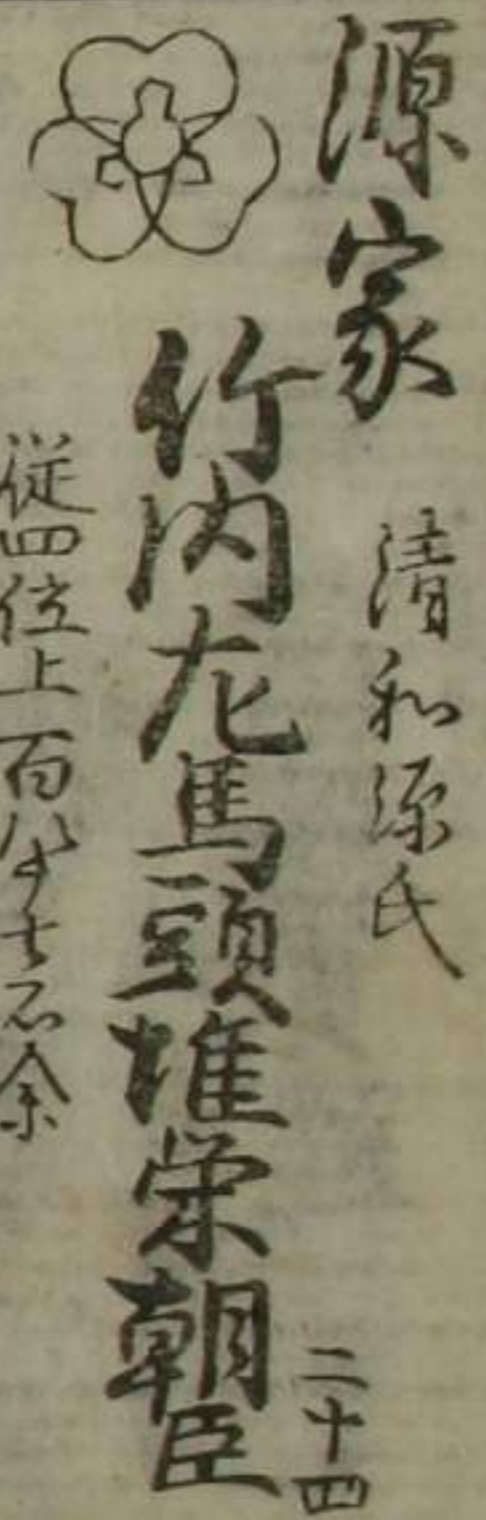 源家 清和源氏
竹内左馬頭惟栄朝臣 二十四
従四位上 百八十七石余